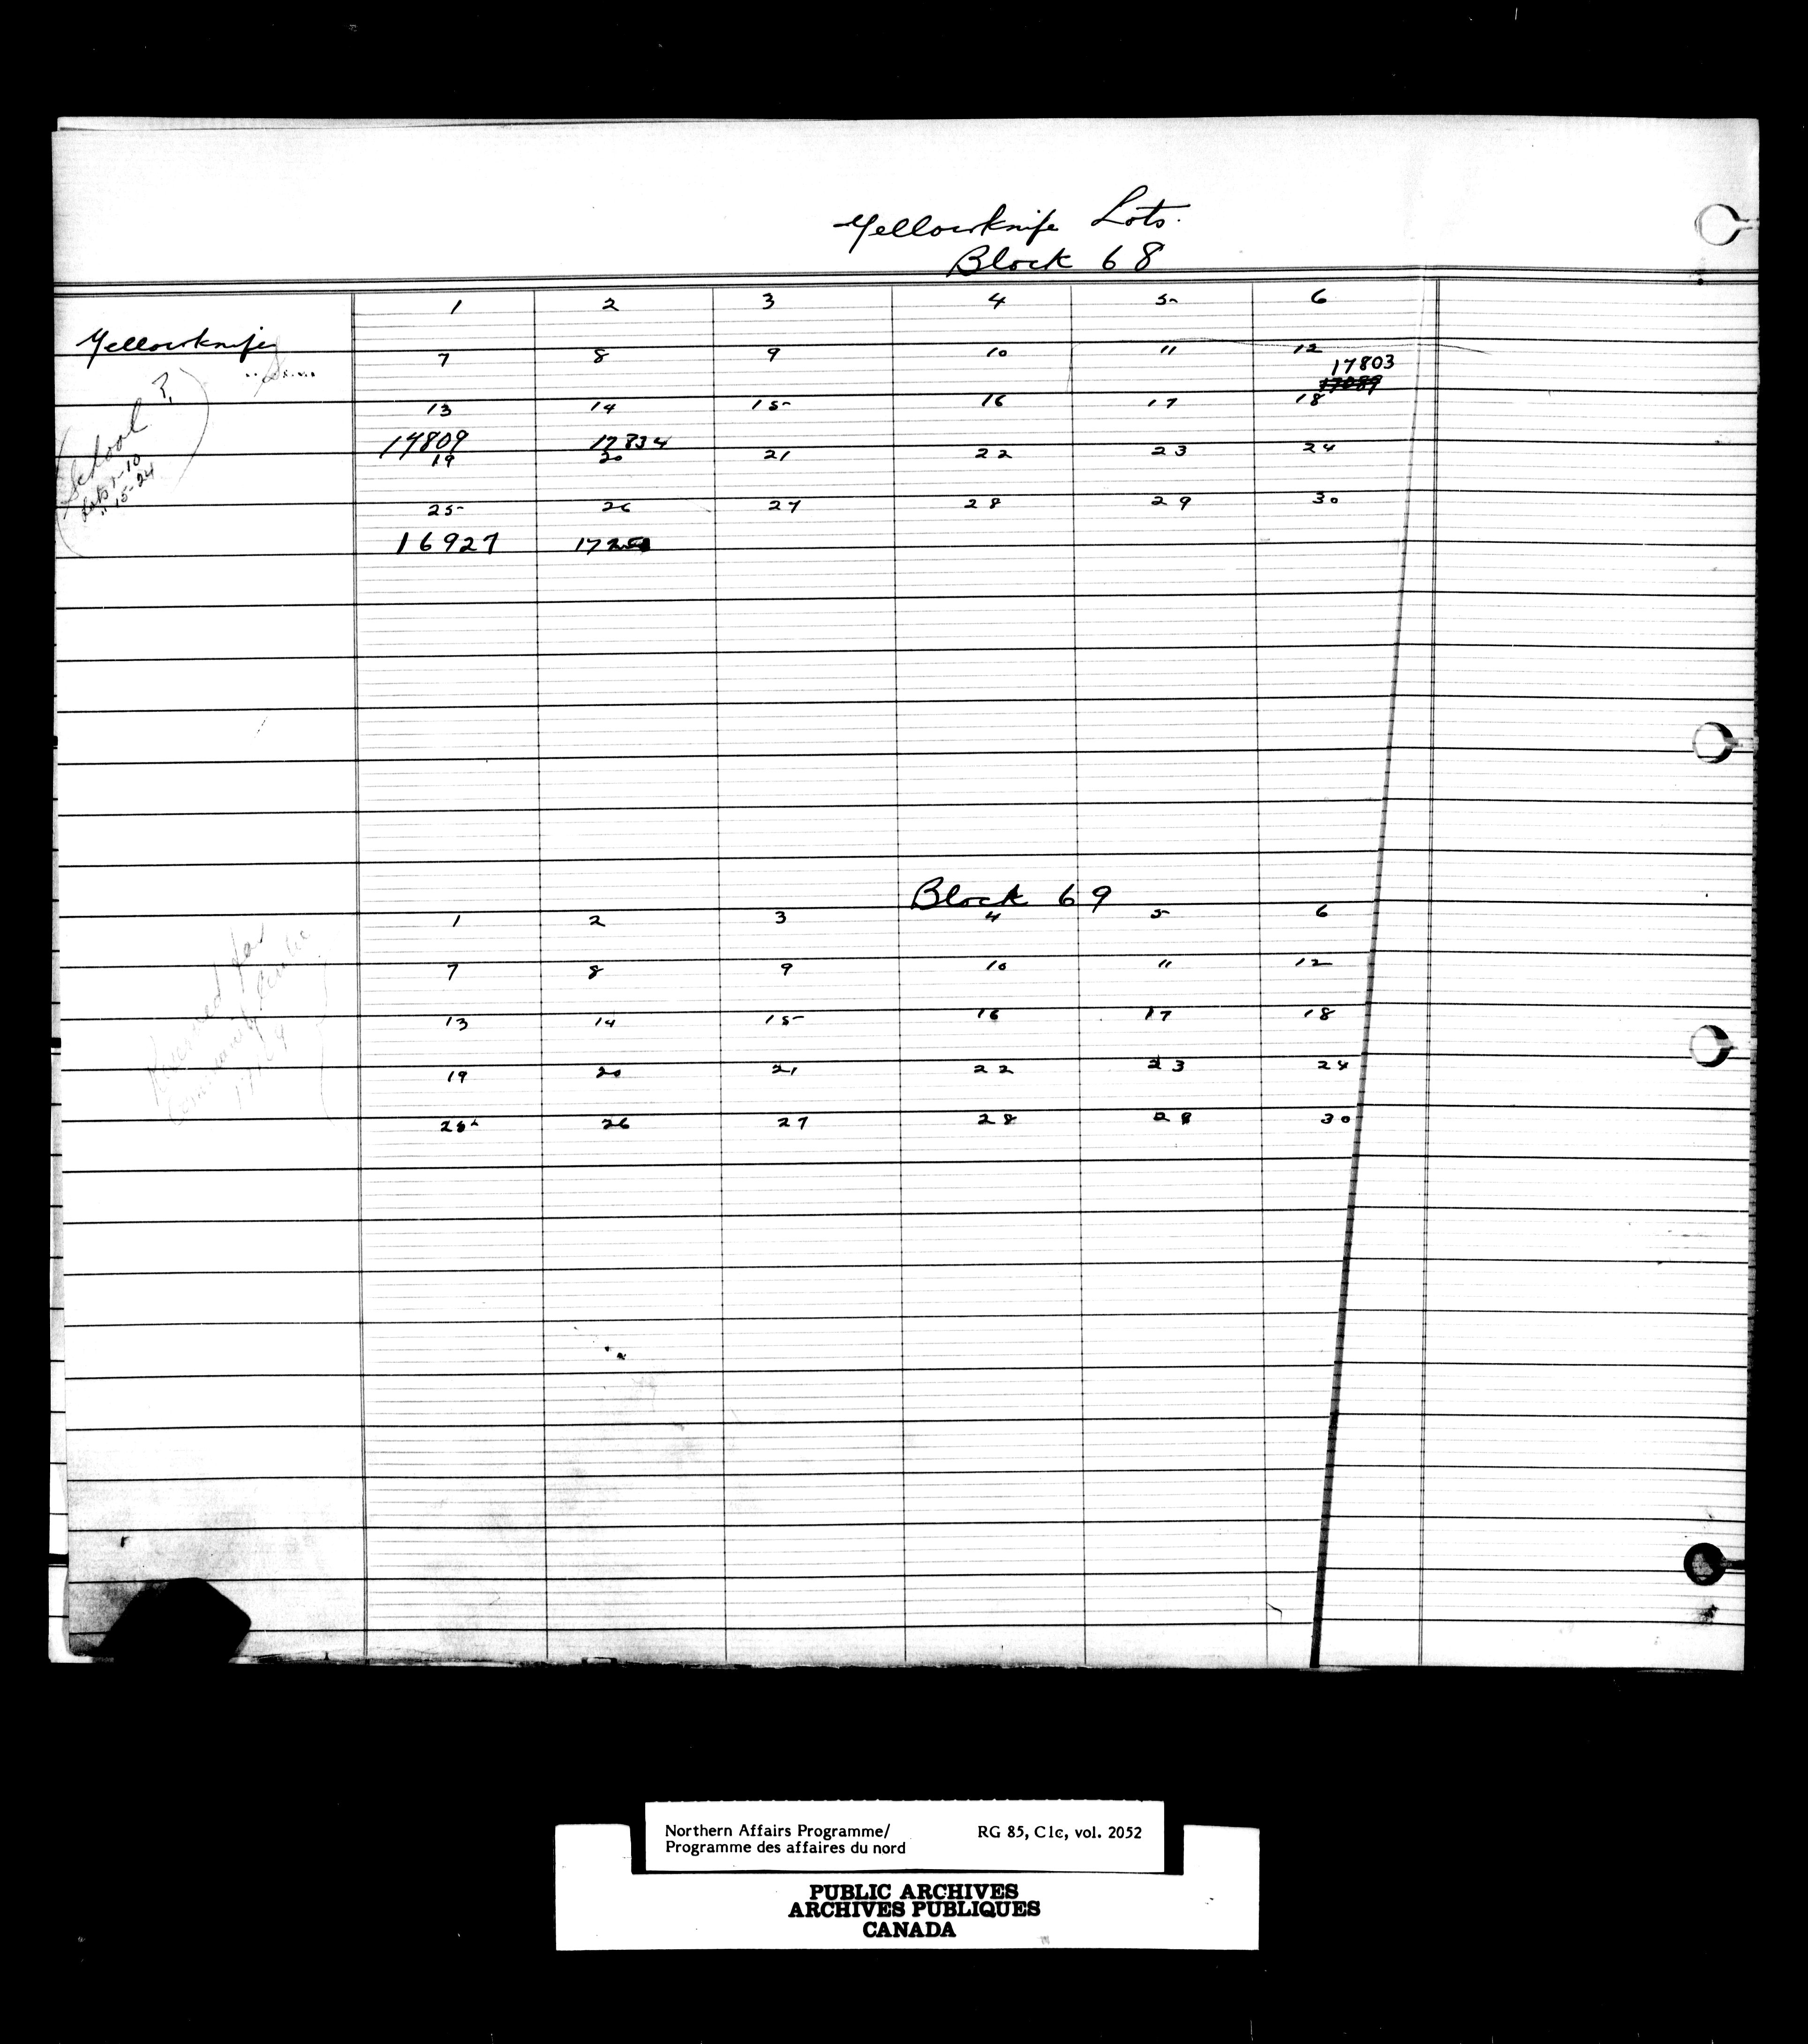 Yellowknife Lots.
Block 68
1 2 3 4 5 6
Yellowknife
7 8 9 10 11 12
17803
17089
School ?
Lots 1-10
" 15-24
13 14 15 16 17 18
17809 17834
19 20 21 22 23 24
25 26 27 28 29 30
16927
Block 69
1 2 3 4 5 6
Reserved for
7 8 9 10 11 12
13 14 15 16 17 18
19 20 21 22 23 24
25 26 27 28 28 30
Northern Affairs Programme/ RG 85, C1c, vol. 2052
Programme des affaires du nord
PUBLIC ARCHIVES
ARCHIVES PUBLIQUES
CANADA